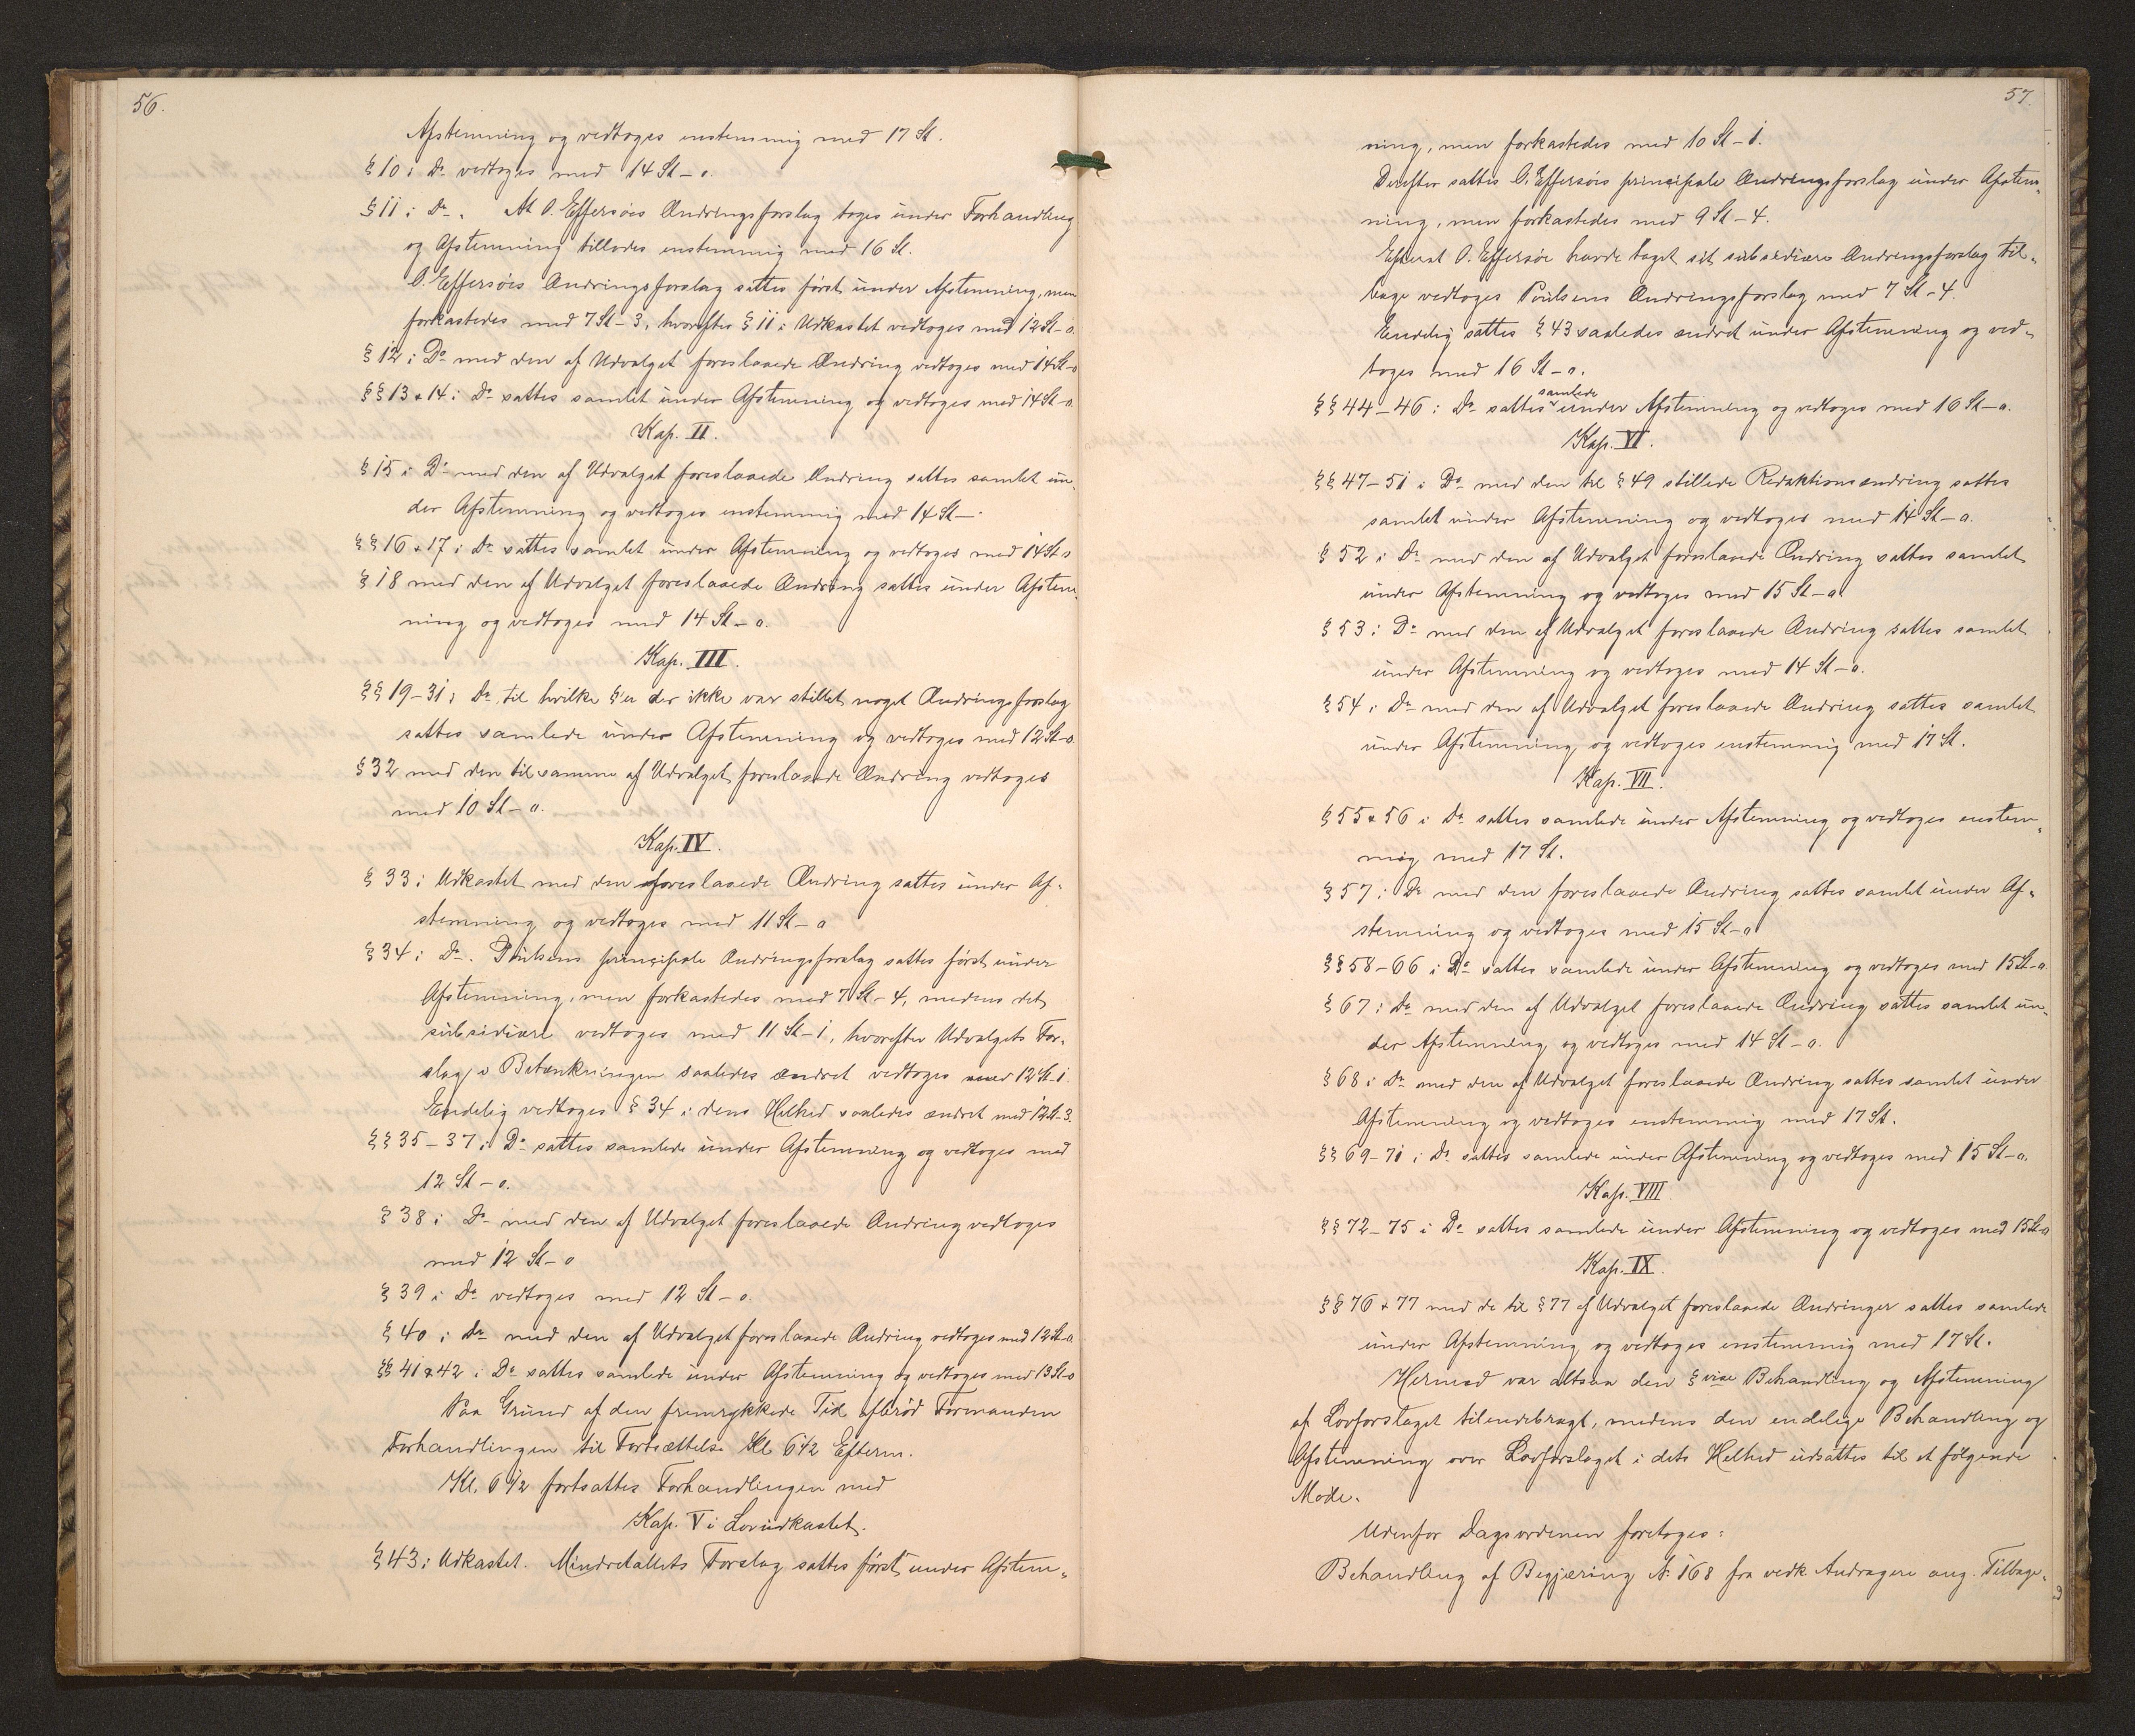 56.
Afstemning og vedtoges enstemmig med 17 St.
§ 10 i Do vedtoges med 14 St – o.
§ 11 i Do. At O. Effersøes Ændringsforslag toges under Forhandling
og Afstemning tillodes enstemmig med 16 St.
O. Effersøes Ændringsforslag sattes først under Afstemning, men
forkastedes med 7 St – 3, hvorefter § 11 i Udkastet vedtoges med 12 St – o.
§ 12 i Do med den af Udvalget foreslaaede Ændring vedtoges med 14 St – o
§§ 13 & 14 i Do sattes samlet under Afstemning og vedtoges med 14 St – o.
Kap. II.
§ 15 i Do med den af Udvalget foreslaaede Ændring sattes samlet un-
der Afstemning og vedtoges enstemmig med 14 St –.
§§ 16 & 17 i Do sattes samlet under Afstemning og vedtoges med 14 St o
§ 18 med den af Udvalget foreslaaede Ændring sattes under Afstem-
ning og vedtoges med 14 St – o.
Kap. III.
§§ 19 – 31 i Do, til hvilke §'er der ikke var stillet noget Ændringsforslag
sattes samlede under Afstemning og vedtoges med 12 St – o.
§ 32 med den til samme af Udvalget foreslaaede Ændring vedtoges
med 10 St – o.
Kap. IV.
§ 33 i Udkastet med den foreslaaede Ændring sattes under Af-
stemning og vedtoges med 11 St – o
§ 34 i Do. Poulsens principale Ændringsforslag sattes først under
Afstemning, men forkastedes med 7 St – 4, medens det
subsidiære vedtoges med 11 St – 1, hvorefter Udvalgets For-
slag i Betænkningen saaledes ændret vedtoges med 12 St – 1.
Endelig vedtoges § 34 i dens Helhed saaledes ændret med 12 St – 3.
§§ 35 – 37 i Do sattes samlede under Afstemning og vedtoges med
12 St – o.
§ 38 i Do med den af Udvalget foreslaaede Ændring vedtoges
med 12 St – o
§ 39 i Do vedtoges med 12 St – o.
§ 40 i Do med den af Udvalget foreslaaede Ændring vedtoges med 12 St – o
§§ 41 & 42 i Do sattes samlede under Afstemning og vedtoges med 13 St – o
Paa Grund af den fremrykkede Tid afbrød Formanden
Forhandlingen til Fortsættelse Kl 6 1/2 Efterm.
Kl. 6 1/2 fortsattes Forhandlingen med
Kap. V i Lovudkastet.
§ 43 i Udkastet. Mindretallets Forslag sattes først under Afstem-
57.
ning, men forkastedes med 10 St – 1.
Derefter sattes O. Effersøes principale Ændringsforslag under Afstem-
ning, men forkastedes med 9 St – 4.
Efterat O. Effersøe havde taget sit subsidiære Ændringsforslag til-
bage vedtoges Poulsens Ændringsforslag med 7 St – 4.
Endelig sattes § 43 saaledes ændret under Afstemning og ved-
toges med 16 St – o.
samlede
§§ 44 – 46 i Do sattes under Afstemning og vedtoges med 16 St – o.
Kap. VI.
§§ 47 – 51 i Do med den til § 49 stillede Redaktionsændring sattes
samlet under Afstemning og vedtoges med 14 St – o.
§ 52 i Do med den af Udvalget foreslaaede Ændring sattes samlet
under Afstemning og vedtoges med 15 St – o.
§ 53 i Do med den af Udvalget foreslaaede Ændring sattes samlet
under Afstemning og vedtoges med 14 St – o.
§ 54 i Do med den af Udvalget foreslaaede Ændring sattes samlet
under Afstemning og vedtoges enstemmig med 17 St.
Kap. VII.
§ 55 & 56 i Do sattes samlede under Afstemning og vedtoges enstem-
mig med 17 St.
§ 57 i Do med den foreslaaede Ændring sattes samlet under Af-
stemning og vedtoges med 15 St – o
§§ 58 – 66 i Do sattes samlede under Afstemning og vedtoges med 15 St – o.
§ 67 i Do med den af Udvalget foreslaaede Ændring sattes samlet un-
der Afstemning og vedtoges med 14 St – o.
§ 68 i Do med den af Udvalget foreslaaede Ændring sattes samlet under
Afstemning og vedtoges enstemmig med 17 St.
§§ 69 – 71 i Do sattes samlede under Afstemning og vedtoges med 15 St – o.
Kap. VIII.
§§ 72 – 75 i Do sattes samlede under Afstemning og vedtoges med 15 St – o
Kap. IX.
§§ 76 & 77 med de til § 77 af Udvalget foreslaaede Ændringer sattes samlede
under Afstemning og vedtoges enstemmig med 17 St.
Hermed var altsaa den § vise Behandling og Afstemning
af Lovforslaget tilendebragt, medens den endelige Behandling og
Afstemning over Lovforslaget i dets Helhed udsattes til et følgende
Møde.
Udenfor Dagsordenen foretoges:
Behandling af Begjæring N: 168 fra vedk. Andragere ang. Tilbage-